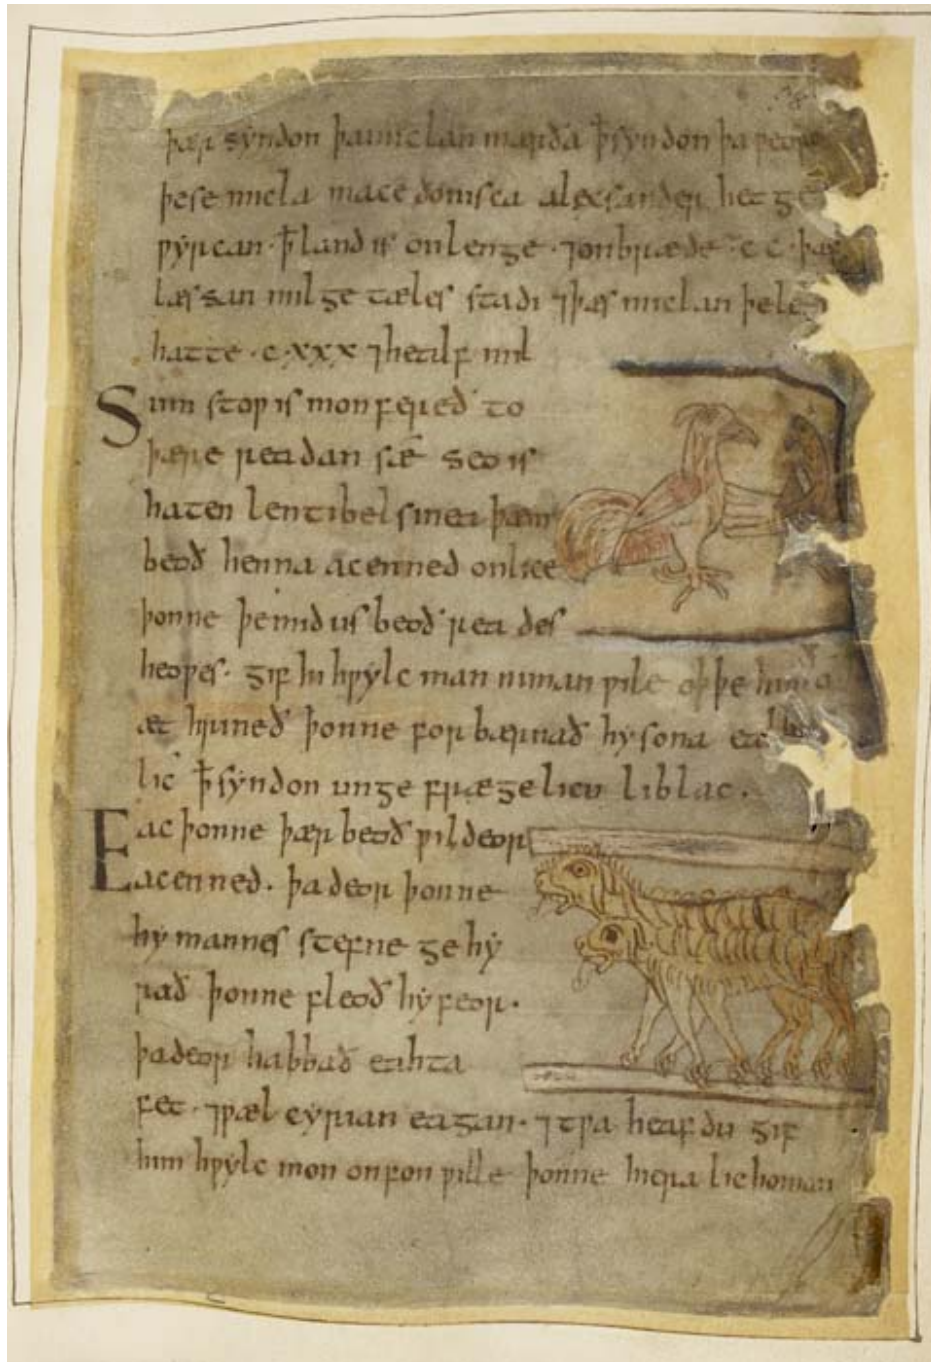 þær syndon þa miclan mærða ꝥ syndon þa ƿeorc
þe se micla macedonisca alexsander het ge
ƿyrcan · ꝥ land is on lenge · ⁊ on bræde · c c · þæs
læssan milgetæles stadi ⁊ þæs miclan þe leuua
hatte · c · xxx ⁊ healf mil
Sum stoƿ is mon fereð to
þære readan sæ seo is
haten lentibelsinea þær
beoð henna acenned onlice
þonne þe mid us beoð reades
heoƿes · gif hi hƿylc man niman ƿile oþþe hira
æt hrineð þonne forbærnað hy sona eal his
lic ꝥ syndon ungefrægelicu liblac ·
Eac þonne þær beoð ƿildeor
acenned · þa deor þonne
hy mannes stefne gehy
rað þonne fleoð hy feor ·
þa deor habbað eahta
fet · ⁊ ƿælcyrian eagan · ⁊ tƿa heafdu gif
him hƿylc mon onfon ƿille þonne hiera lichoman